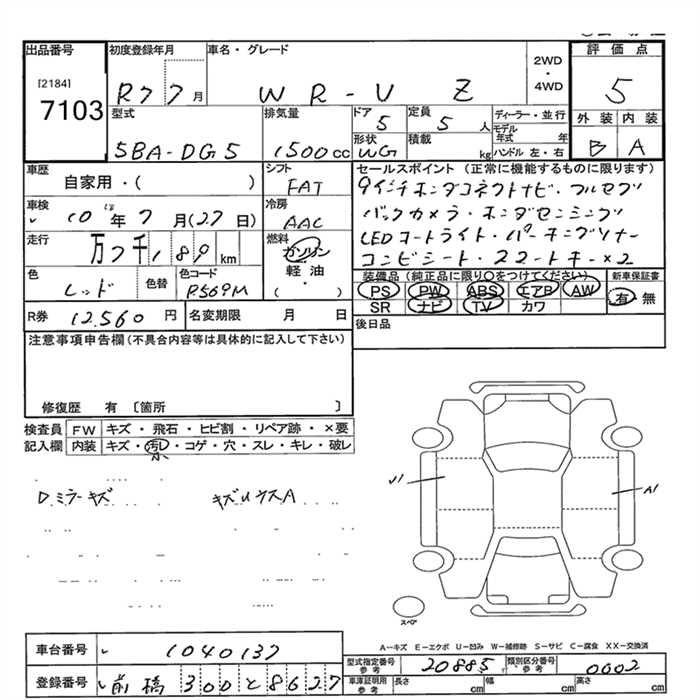 出品番号 初度登録年月 車名・グレード 2WD・4WD 評価点
[2184]
7103 R7 7月 WR-V Z 5
型式 排気量 ドア 定員 ディーラー・並行 外装 内装
5BA-DG5 1500cc 5 5人 モデル年式 年 B A
形状 積載 ハンドル 左・右
WG kg
車歴 シフト セールスポイント(正常に機能するものに限ります)
自家用・( ) FAT 9インチホンダコネクトナビ・フルセグ
車検 冷房 バックカメラ・ホンダセンシング
10年7月(27日) AAC LEDコートライト・パーキングソナー
走行 燃料 コンビシート・スマートキー×2
万7千189km ガソリン 装備品(純正品に限り○をつけてください) 新車保証書
色 色替 色コード 軽油 PS PW ABS エアB AW 有 無
レッド R569M ・( ) SR ナビ TV カワ
R券 12,560円 名変期限 月 日 後日品
注意事項申告欄(不具合内容等は具体的に記入して下さい)
修復歴 有 〔箇所 〕
検査員 FW キズ・飛石・ヒビ割・リペア跡・×要
記入欄 内装 キズ・汚レ・コゲ・穴・スレ・キレ・破レ
小
D.ミラーキズ キズUウスA
A1
スペア
A-キズ E-エクボ U-凹み W-補修跡 S-サビ C-腐食 XX-交換済
車台番号 1040137
型式指定番号 参考 20885 類別区分番号 参考 0002
登録番号 前橋 300 と 8627
車庫証明用 参考 長さ cm 幅 cm 高さ cm